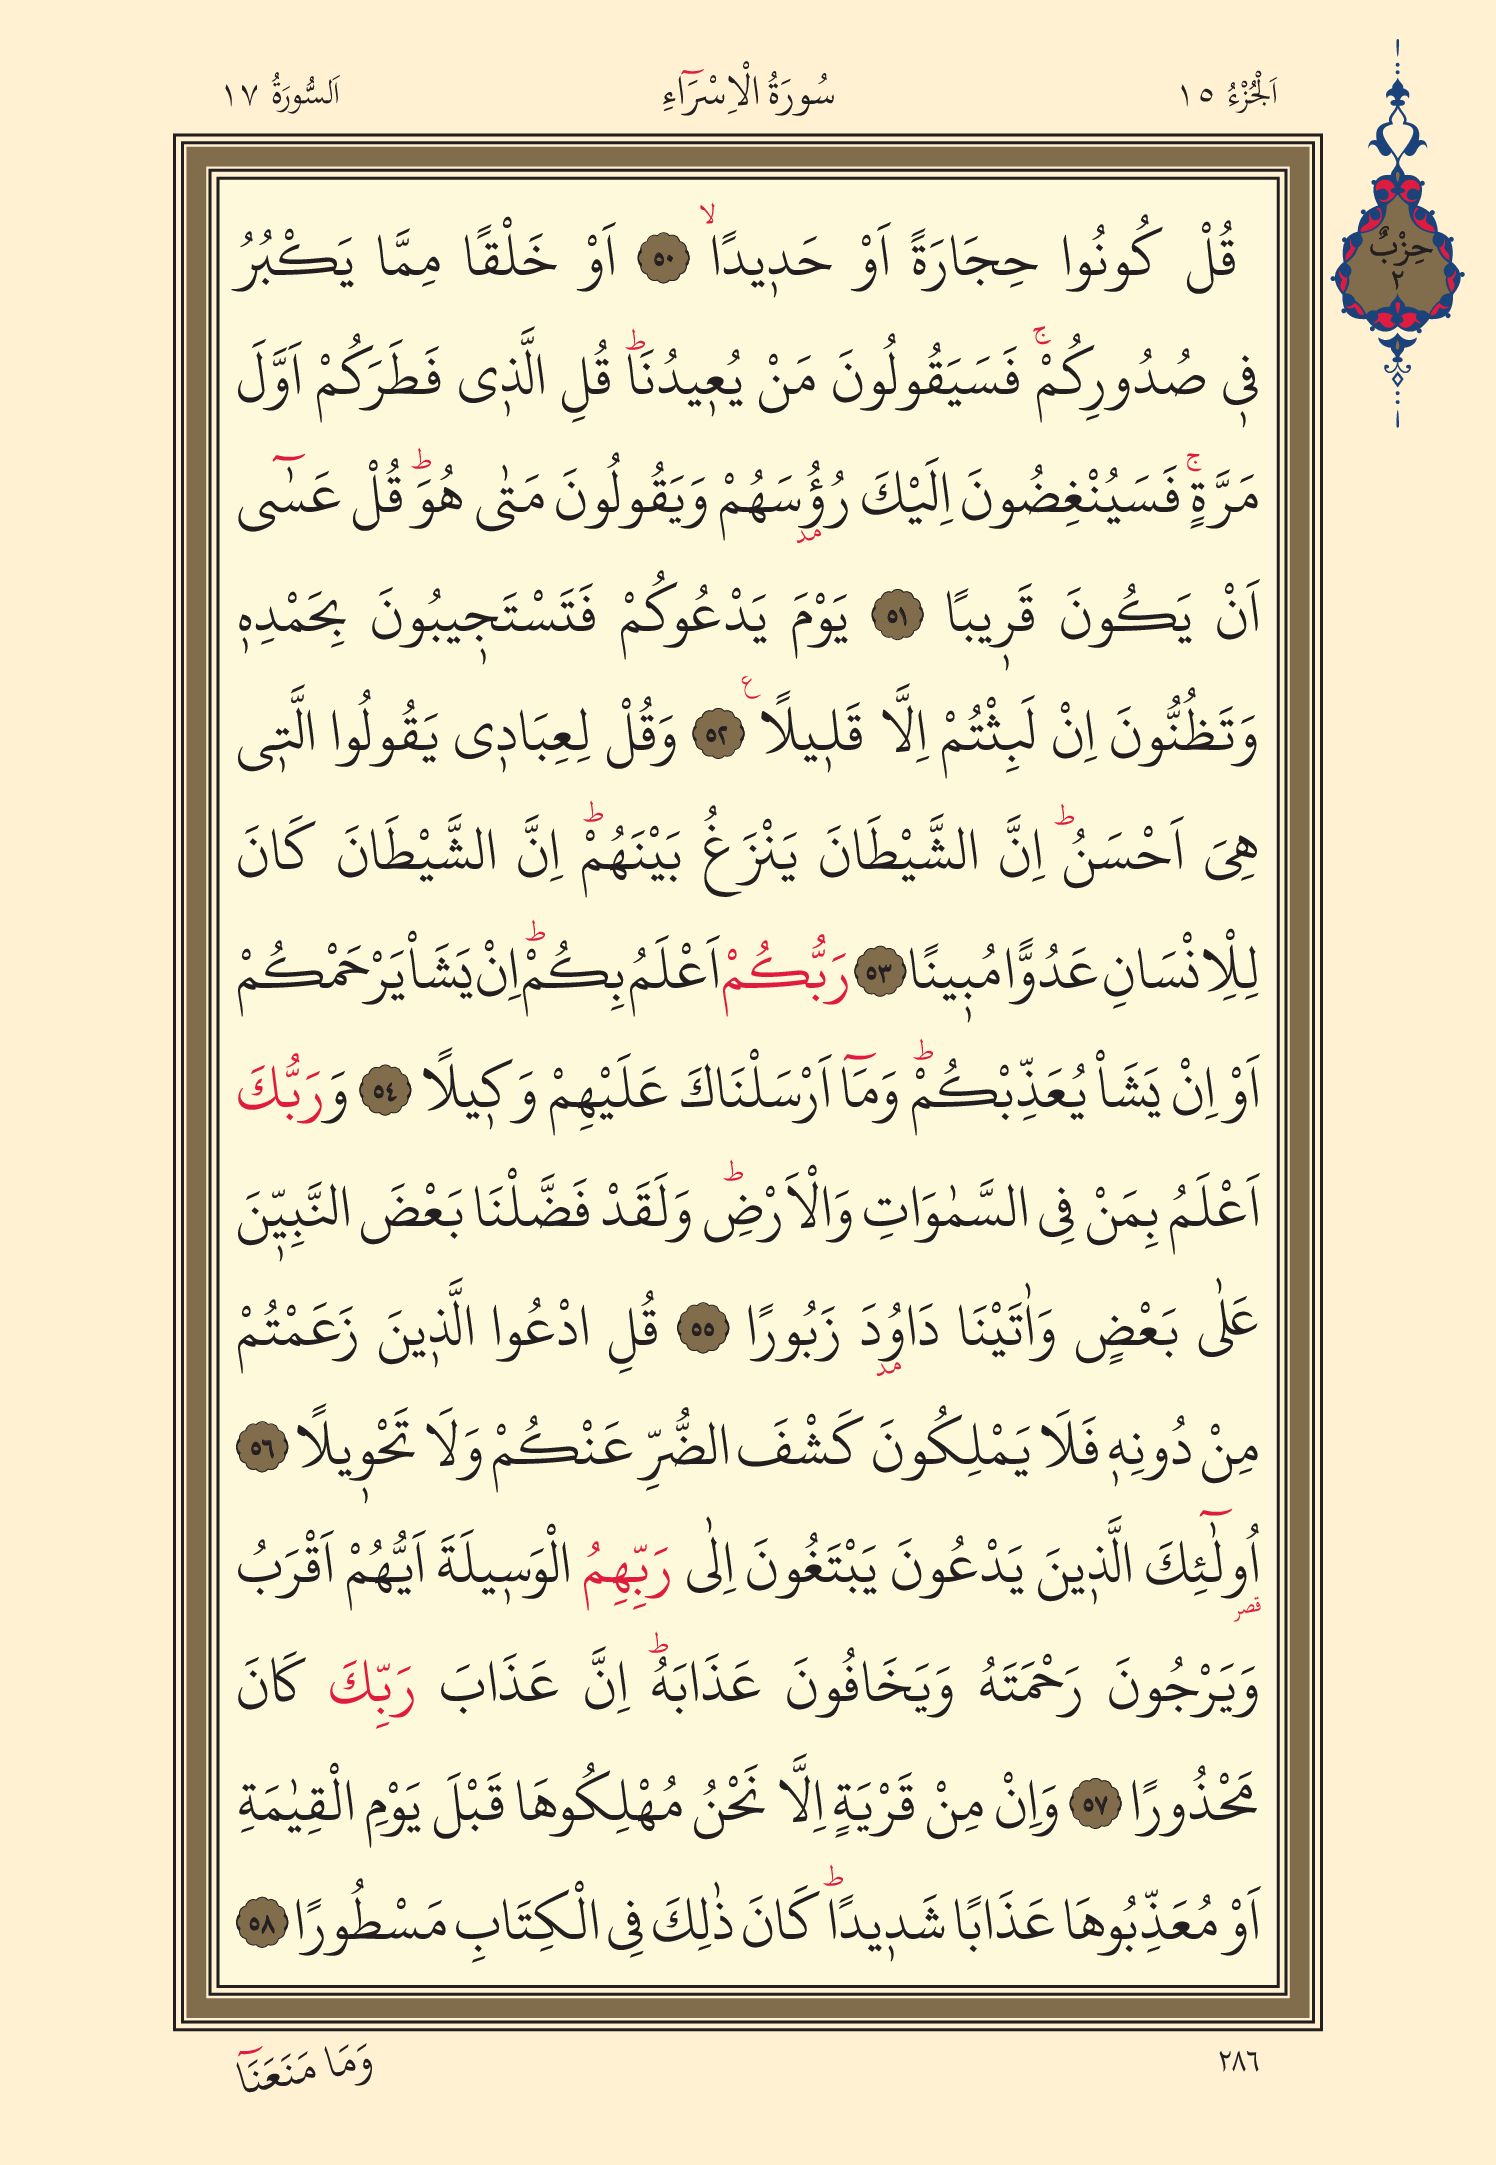 اَلْجُزْءُ ١٥
سُورَةُ الْاِسْرَٓاءِ
اَلسُّورَةُ ١٧
حِزْبٌ
٢
قُلْ كُونُوا حِجَارَةً اَوْ حَد۪يدًاۙ ﴿٥٠﴾ اَوْ خَلْقًا مِمَّا يَكْبُرُ
ف۪ي صُدُورِكُمْۚ فَسَيَقُولُونَ مَنْ يُع۪يدُنَاۜ قُلِ الَّذ۪ى فَطَرَكُمْ اَوَّلَ
مَرَّةٍۚ فَسَيُنْغِضُونَ اِلَيْكَ رُؤُ۫سَهُمْ وَيَقُولُونَ مَتٰى هُوَۜ قُلْ عَسٰٓى
اَنْ يَكُونَ قَر۪يبًا ﴿٥١﴾ يَوْمَ يَدْعُوكُمْ فَتَسْتَج۪يبُونَ بِحَمْدِه۪
وَتَظُنُّونَ اِنْ لَبِثْتُمْ اِلَّا قَل۪يلًا۟ ﴿٥٢﴾ وَقُلْ لِعِبَاد۪ى يَقُولُوا الَّت۪ى
هِىَ اَحْسَنُۜ اِنَّ الشَّيْطَانَ يَنْزَغُ بَيْنَهُمْۜ اِنَّ الشَّيْطَانَ كَانَ
لِلْاِنْسَانِ عَدُوًّا مُب۪ينًا ﴿٥٣﴾ رَبُّكُمْ اَعْلَمُ بِكُمْۜ اِنْ يَشَاْ يَرْحَمْكُمْ
اَوْ اِنْ يَشَاْ يُعَذِّبْكُمْۜ وَمَٓا اَرْسَلْنَاكَ عَلَيْهِمْ وَك۪يلًا ﴿٥٤﴾ وَرَبُّكَ
اَعْلَمُ بِمَنْ فِى السَّمٰوَاتِ وَالْاَرْضِۜ وَلَقَدْ فَضَّلْنَا بَعْضَ النَّبِيّ۪نَ
عَلٰى بَعْضٍ وَاٰتَيْنَا دَاوُ۫دَ زَبُورًا ﴿٥٥﴾ قُلِ ادْعُوا الَّذ۪ينَ زَعَمْتُمْ
مِنْ دُونِه۪ فَلَا يَمْلِكُونَ كَشْفَ الضُّرِّ عَنْكُمْ وَلَا تَحْو۪يلًا ﴿٥٦﴾
اُو۬لٰٓئِكَ الَّذ۪ينَ يَدْعُونَ يَبْتَغُونَ اِلٰى رَبِّهِمُ الْوَس۪يلَةَ اَيُّهُمْ اَقْرَبُ
وَيَرْجُونَ رَحْمَتَهُ وَيَخَافُونَ عَذَابَهُۜ اِنَّ عَذَابَ رَبِّكَ كَانَ
مَحْذُورًا ﴿٥٧﴾ وَاِنْ مِنْ قَرْيَةٍ اِلَّا نَحْنُ مُهْلِكُوهَا قَبْلَ يَوْمِ الْقِيٰمَةِ
اَوْ مُعَذِّبُوهَا عَذَابًا شَد۪يدًاۜ كَانَ ذٰلِكَ فِى الْكِتَابِ مَسْطُورًا ﴿٥٨﴾
٢٨٦
وَمَا مَنَعَنَٓا